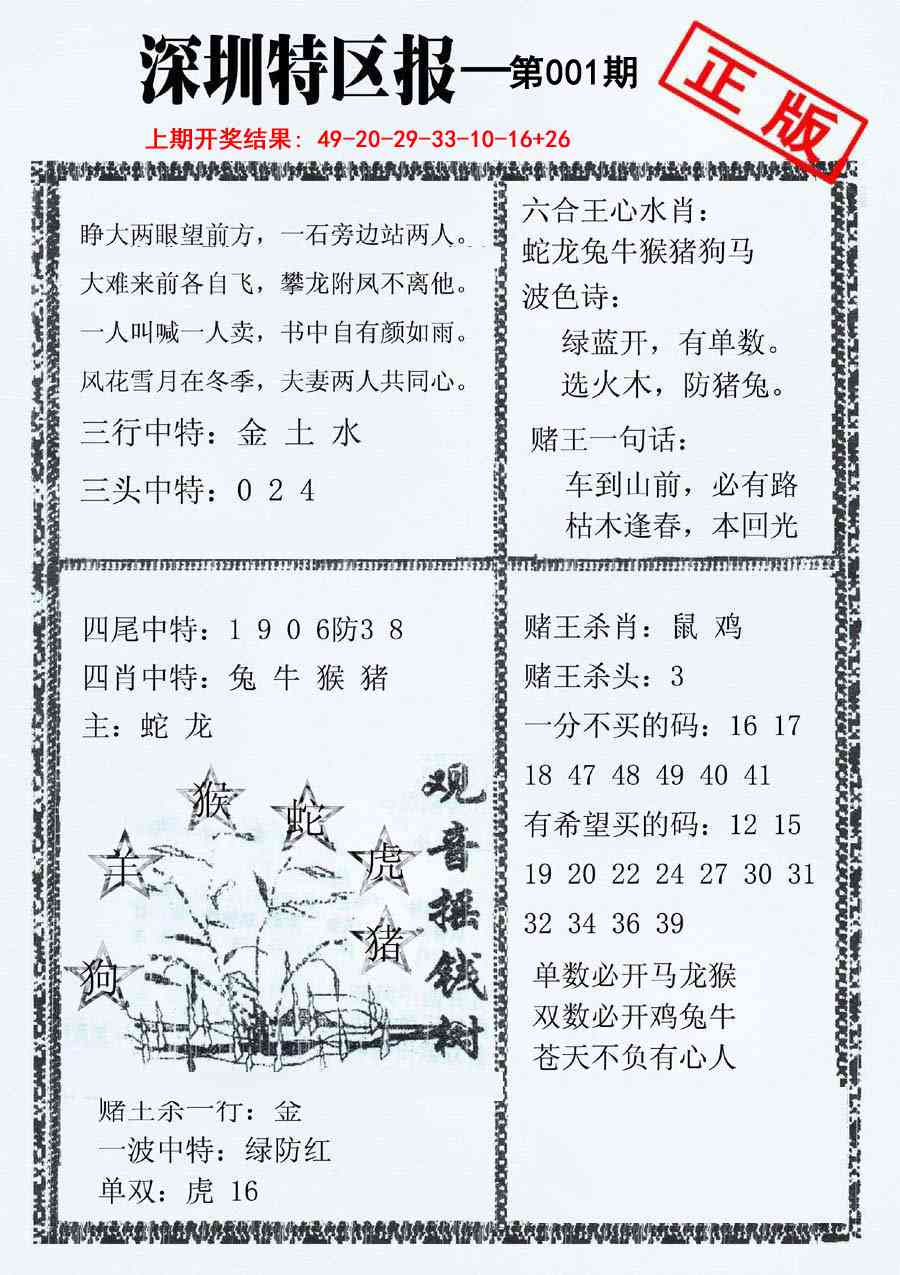 深圳特区报—第001期
正版
上期开奖结果: 49-20-29-33-10-16+26
睁大两眼望前方，一石旁边站两人。
大难来前各自飞，攀龙附凤不离他。
一人叫喊一人卖，书中自有颜如雨。
风花雪月在冬季，夫妻两人共同心。
三行中特：金 土 水
三头中特：0 2 4
六合王心水肖：
蛇龙兔牛猴猪狗马
波色诗：
绿蓝开，有单数。
选火木，防猪兔。
赌王一句话：
车到山前，必有路
枯木逢春，本回光
四尾中特：1 9 0 6防3 8
四肖中特：兔 牛 猴 猪
主：蛇 龙
猴
蛇
羊
虎
猪
狗
观音摇钱树
赌王杀一行：金
一波中特：绿防红
单双：虎 16
赌王杀肖：鼠 鸡
赌王杀头：3
一分不买的码：16 17
18 47 48 49 40 41
有希望买的码：12 15
19 20 22 24 27 30 31
32 34 36 39
单数必开马龙猴
双数必开鸡兔牛
苍天不负有心人